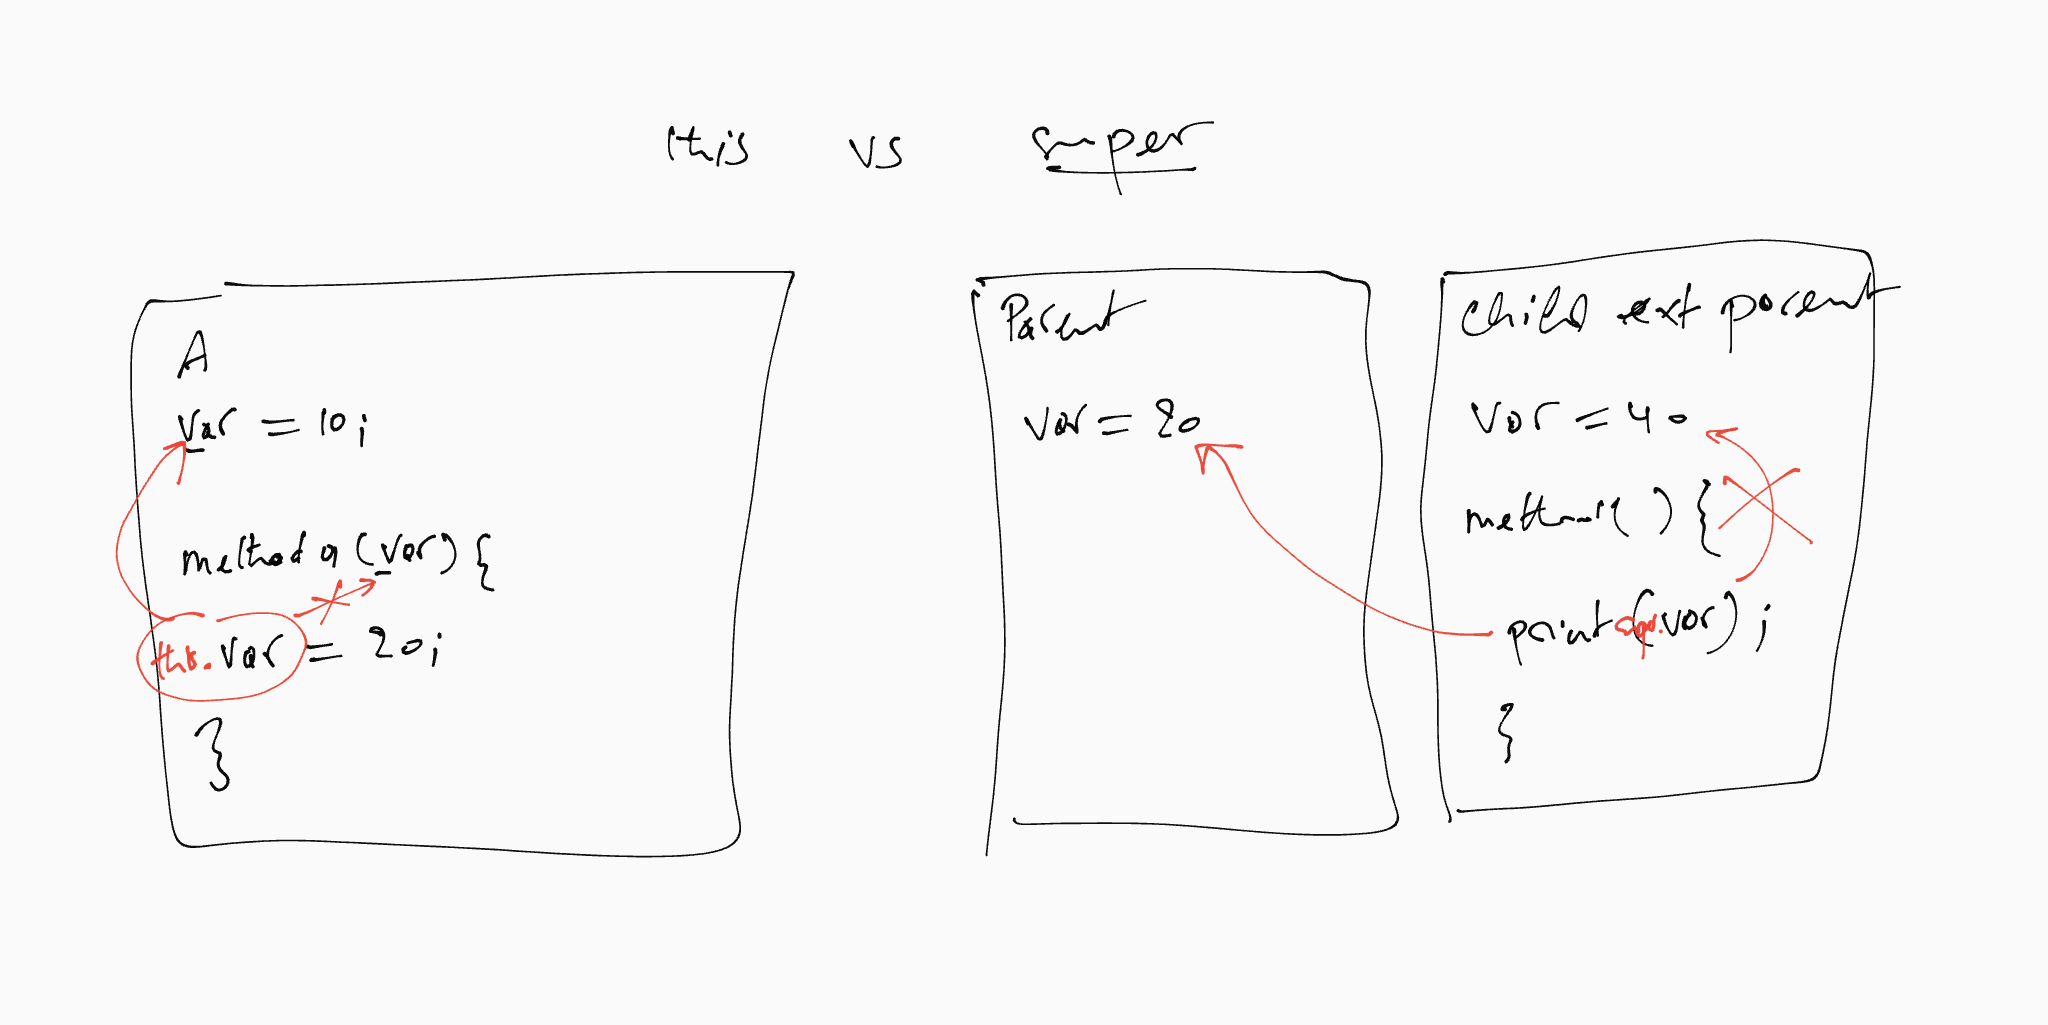 this vs super
A
var = 10;
method a (var) {
this.var = 20;
}
Parent
var = 20
child ext parent
var = 40
method( ) {
print(sup.var);
}